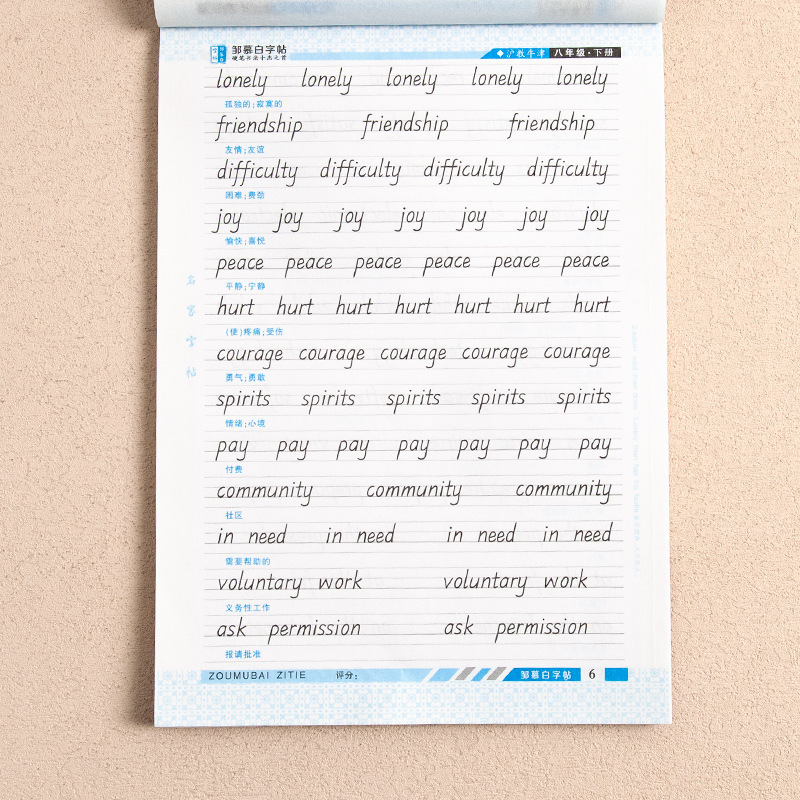 邹慕白字帖
硬笔书法十杰之首
沪教牛津 八年级·下册
lonely lonely lonely lonely lonely
孤独的;寂寞的
friendship friendship friendship
友情;友谊
difficulty difficulty difficulty difficulty
困难;费劲
joy joy joy joy joy joy joy
愉快;喜悦
peace peace peace peace peace peace
平静;宁静
hurt hurt hurt hurt hurt hurt hurt
(使)疼痛;受伤
courage courage courage courage courage
勇气;勇敢
spirits spirits spirits spirits spirits
情绪;心境
pay pay pay pay pay pay pay
付费
community community community
社区
in need in need in need in need
需要帮助的
voluntary work voluntary work
义务性工作
ask permission ask permission
报请批准
名家字帖
ZOUMUBAI ZITIE 评分: 邹慕白字帖 6